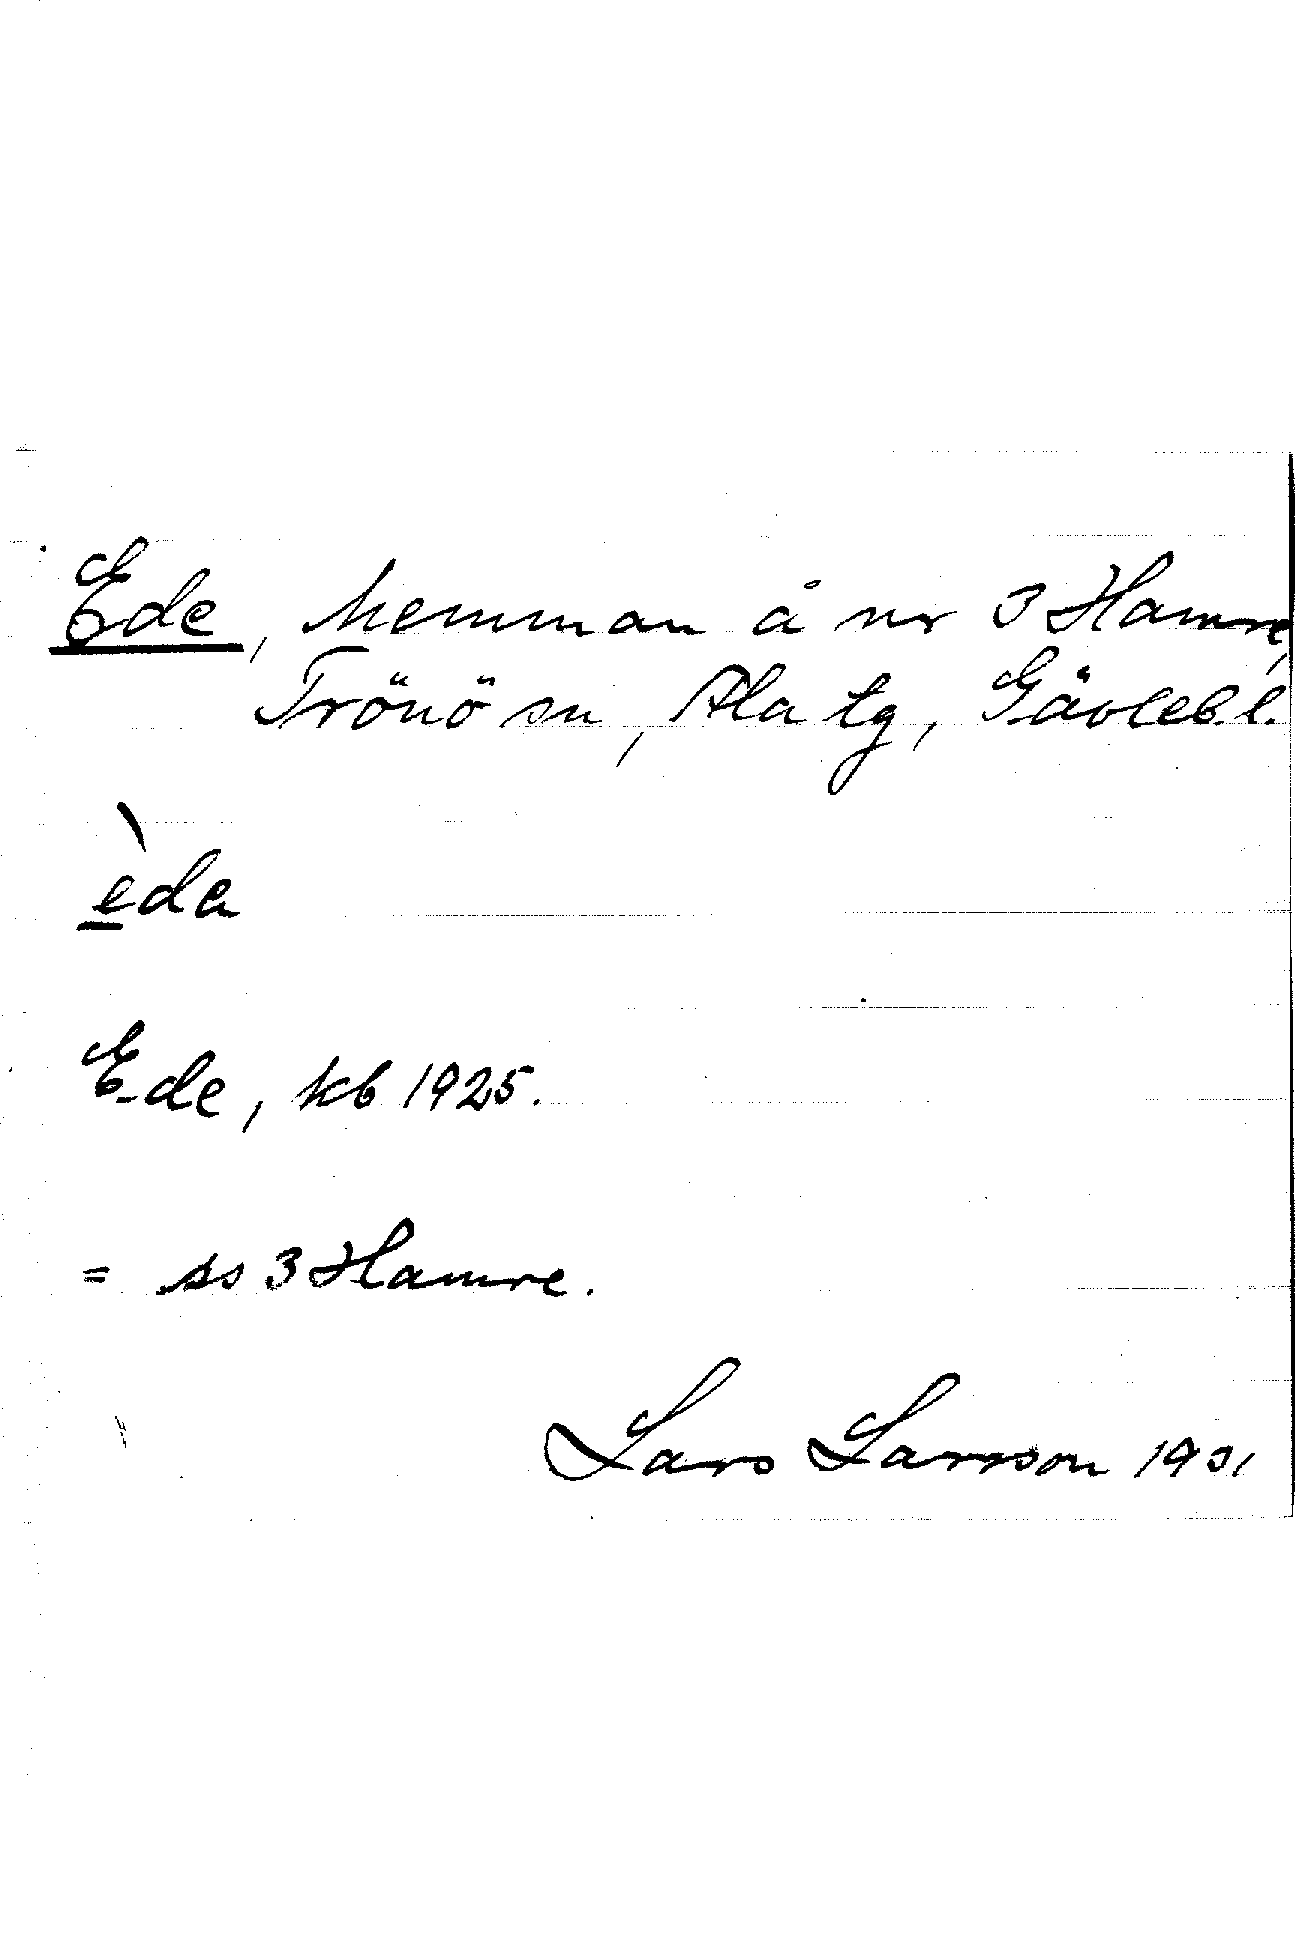 Ede, hemman å nr 3 Hamre,
Trönö sn, Ala tg, Gävleb. l.
èda
Ede, kb 1925.
= ss 3 Hamre.
Lars Larsson 1931